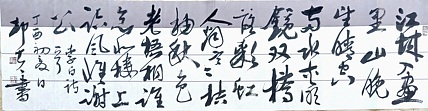 江城如画
里山晚
望晴空
两水夹明
镜双桥
落彩虹
人烟寒橘
柚秋色
老梧桐谁
念北楼上
临风怀谢
公 李白诗
丁酉初夏日
书